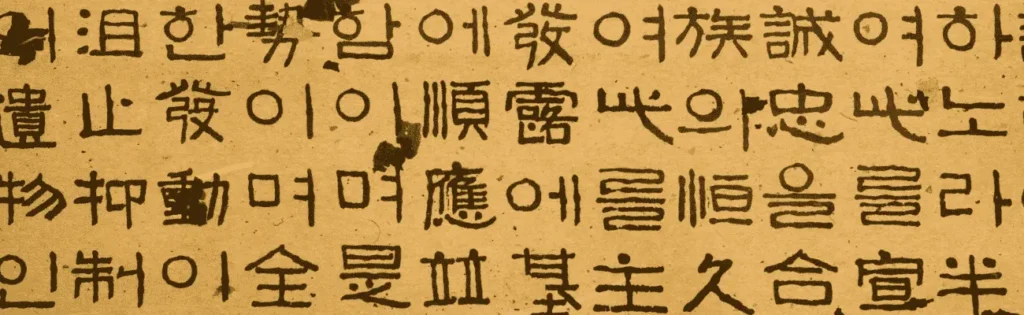 하노라半
여此를宣
誠忠을合
族의恒久
여此를主
發露에基
에順應並
함이며是
勢이며全
한發動이
沮止抑制
遺物인